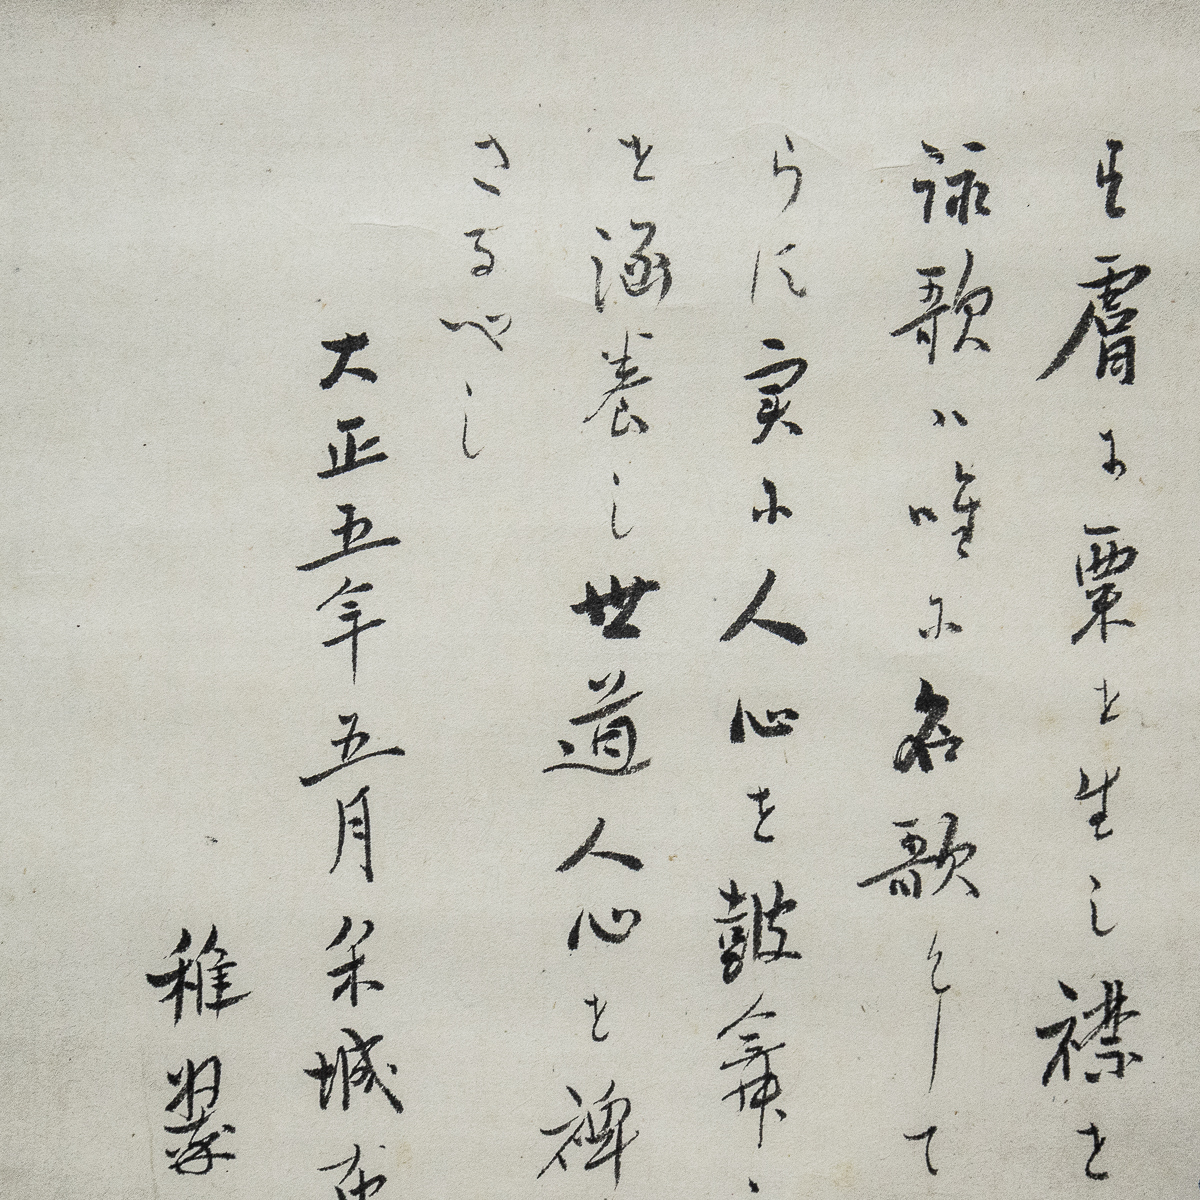 膚に粟を生し襟を
詠歌ハ唯に名歌として
らす実に人心を鼓舞
を涵養し世道人心を裨
さるへし
大正五年五月 城
稚翠